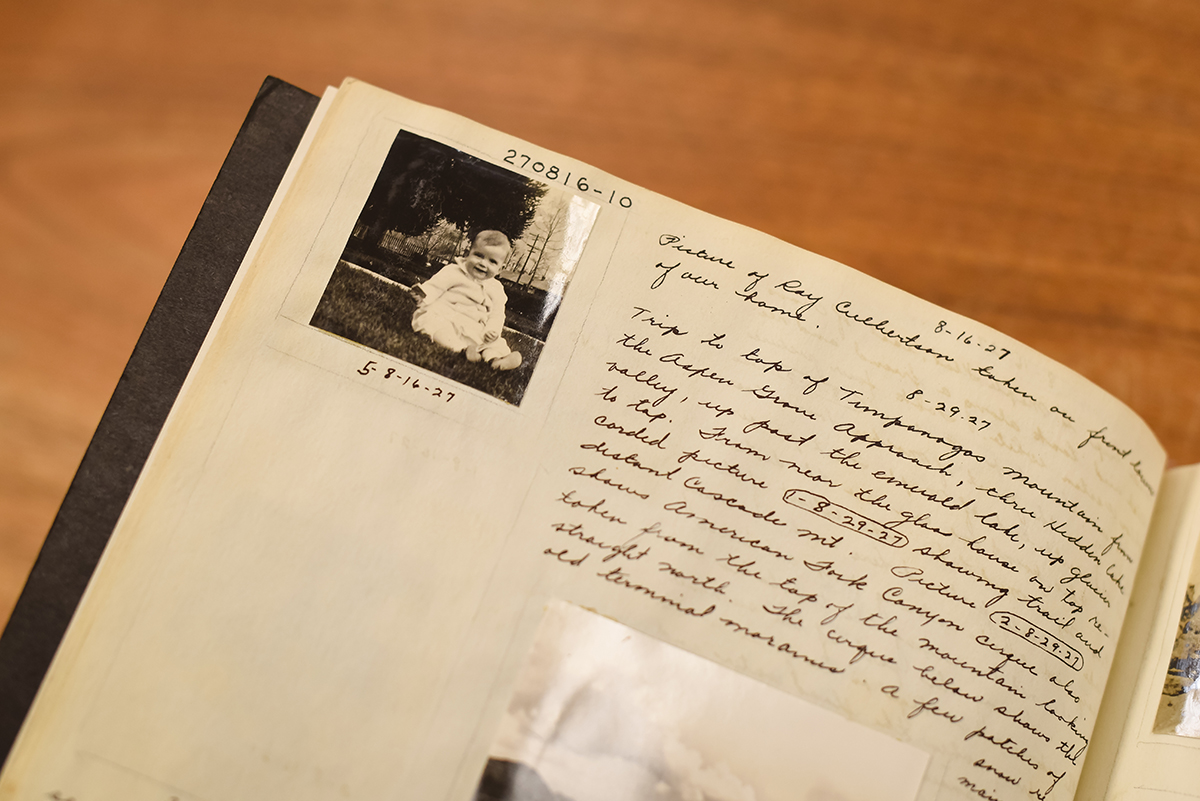 270816-10
5-8-16-27
8-16-27
Picture of Ray Culbertson taken on front lawn
of our home.
8-29-27
Trip to top of Timpanogos Mountain from
the Aspen Grove Approach, thru Hidden Lake
valley, up past the emerald lake, up glacier
to top. From near the glass house on top re-
corded picture 1-8-29-27 showing trail and
distant Cascade mt. Picture 2-8-29-27
shows American Fork Canyon cirque also
taken from the top of the mountain looking
straight north. The cirque below shows the
old terminal moraines. A few patches of
snow re